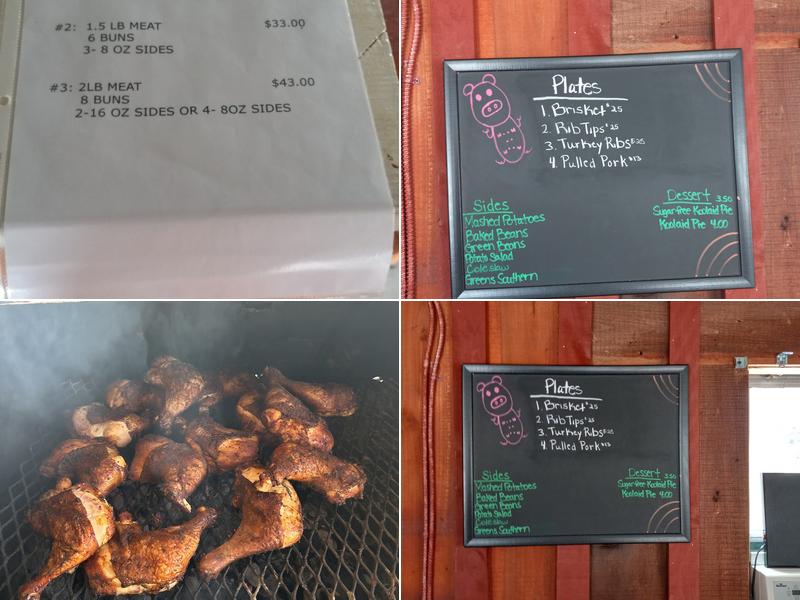 #2: 1.5 LB MEAT $33.00
6 BUNS
3- 8 OZ SIDES
#3: 2LB MEAT $43.00
8 BUNS
2-16 OZ SIDES OR 4- 8OZ SIDES
Plates
1. Brisket $25
2. Rib Tips $25
3. Turkey Ribs $25
4. Pulled Pork $13
Sides
Mashed Potatoes
Baked Beans
Green Beans
Potato Salad
Coleslaw
Greens Southern
Dessert 3.50
Sugar-free Koolaid Pie
Koolaid Pie 4.00
Plates
1. Brisket $25
2. Rib Tips $25
3. Turkey Ribs $25
4. Pulled Pork $13
Sides
Mashed Potatoes
Baked Beans
Green Beans
Potato Salad
Coleslaw
Greens Southern
Dessert 3.50
Sugar-free Koolaid Pie
Koolaid Pie 4.00